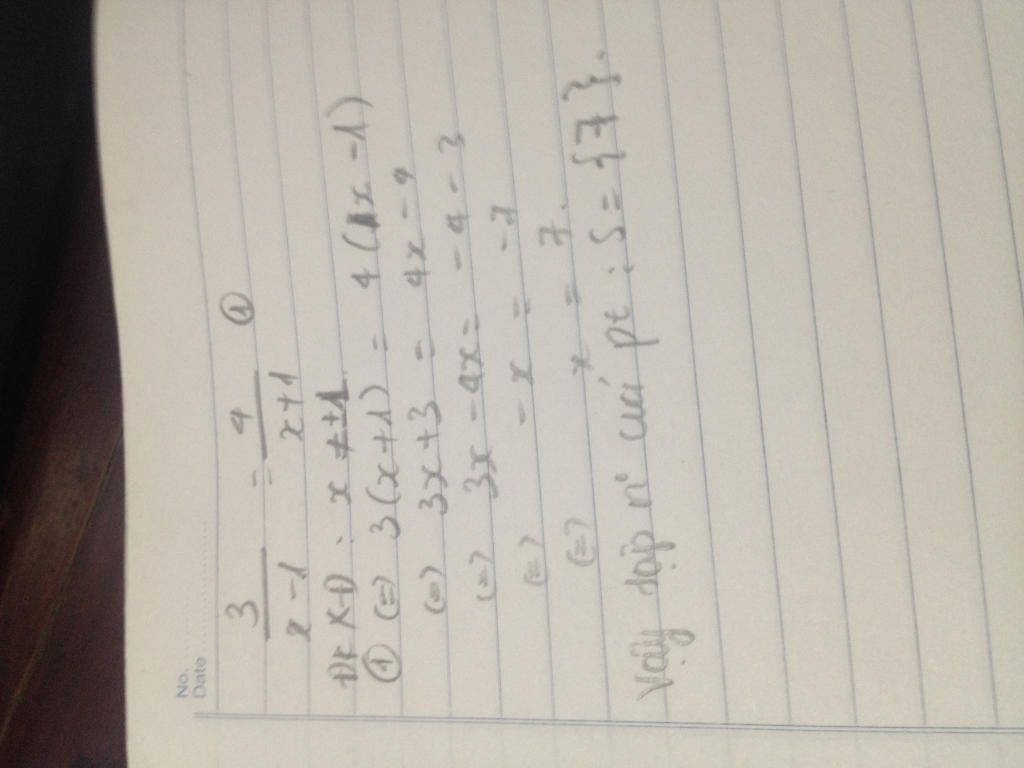 No.
Date
3/(x-1) = 4/(x+1) ①
ĐKXĐ: x ≠ ±1.
① (=) 3(x+1) = 4(x-1)
(=) 3x+3 = 4x-4
(=) 3x-4x = -4-3
(=) -x = -7
(=) x = 7.
Vậy tập n° của pt: S = {7}.